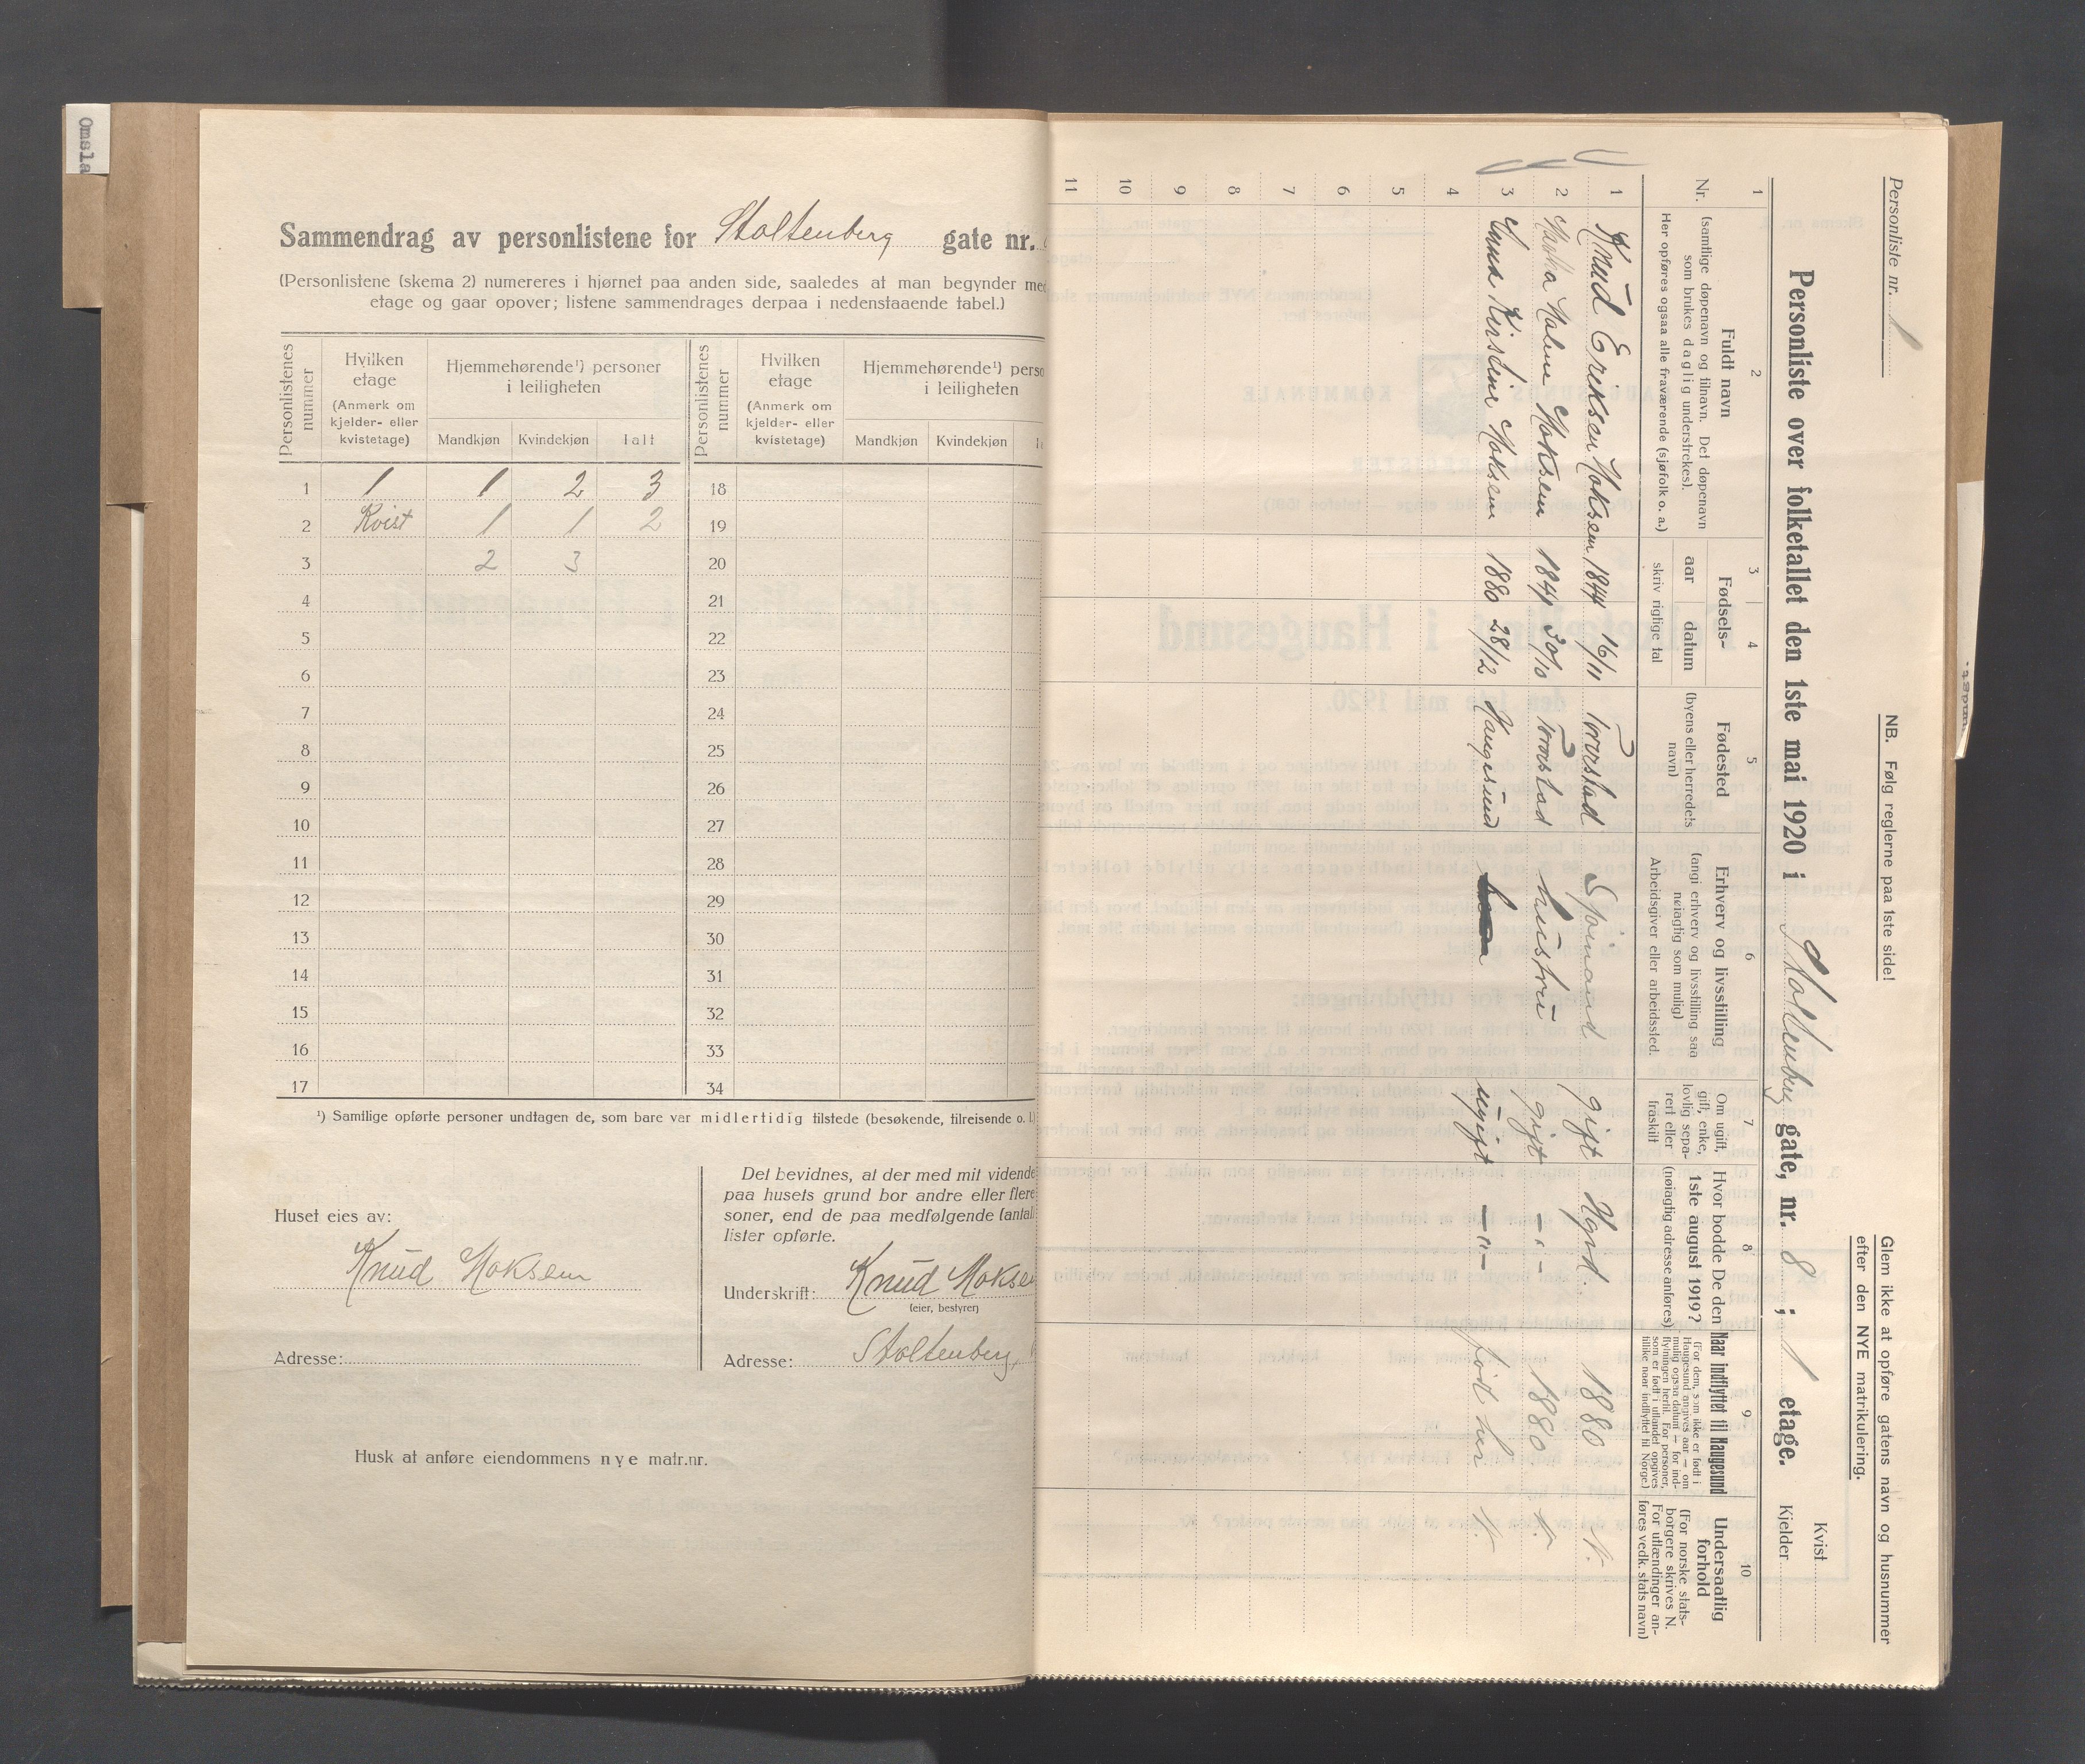 Omsla
Sammendrag av personlistene for Stoltenberg gate nr.
(Personlistene (skema 2) numereres i hjørnet paa anden side, saaledes at man begynder med
etage og gaar opover; listene sammendrages derpaa i nedenstaaende tabel.)
Personlistenes nummer
Hvilken etage (Anmerk om kjelder- eller kvistetage)
Hjemmehørende¹) personer i leiligheten
Mandkjøn Kvindekjøn Ialt
Personlistenes nummer
Hvilken etage (Anmerk om kjelder- eller kvistetage)
Hjemmehørende¹) perso
i leiligheten
Mandkjøn Kvindekjøn
1 1 1 2 3 18
2 Kvist 1 1 2 19
3 2 3 20
4 21
5 22
6 23
7 24
8 25
9 26
10 27
11 28
12 29
13 30
14 31
15 32
16 33
17 34
¹) Samtlige opførte personer undtagen de, som bare var midlertidig tilstede (besøkende, tilreisende o. l.)
Huset eies av:
Knud Moksem
Adresse:
Det bevidnes, at der med mit vidende
paa husets grund bor andre eller flere
soner, end de paa medfølgende (antal
lister opførte.
Underskrift: Knud Mokse
(eier, bestyrer)
Adresse: Stoltenberg,
Husk at anføre eiendommens nye matr.nr.
Personliste nr. 1
NB. Følg reglerne paa 1ste side!
Glem ikke at opføre gatens navn og husnummer
efter den NYE matrikulering.
Personliste over folketallet den 1ste mai 1920 i Stoltenberg gate, nr. 8 ; 1 etage.
Kvist
Kjelder
1 2 3 4 5 6 7 8 9 10
Nr.
Fuldt navn
(samtlige døpenavn og tilnavn. Det døpenavn
som brukes daglig understrekes).
Her opføres ogsaa alle fraværende (sjøfolk o. a.)
Fødsels-
aar datum
skriv rigtige tal
Fødested
(byens eller herredets
navn)
Erhverv og livsstilling
(angi erhverv og livsstilling saa
nøiagtig som mulig)
Arbeidsgiver eller arbeidssted.
Om ugift,
gift, enke,
lovlig sepa-
rert eller
fraskilt
Hvor bodde De den
1ste august 1919?
(nøiagtig adresse anføres)
Naar indflyttet til Haugesund
(For dem, som ikke er født i
Haugesund angives aar — om
mulig ogsaa datum — for ind-
flytningen hertil. For personer,
som er født i utlandet opgives
tillike naar indflyttet til Norge.)
Undersaatlig
forhold
(For norske stats-
borgere skrives N.
For utlændinger an-
føres vedk. stats navn)
1 Knud Eriksen Moksem 1844 16/11 Torvastad Sjømand gift Hgsd. 1880 N.
2 Malene Moksem 1841 30/10 Torvastad hustru gift —"— 1880 N.
3 Anna Kirstine Moksem 1880 28/12 Haugesund ugift —"— født her N.
4
5
6
7
8
9
10
11